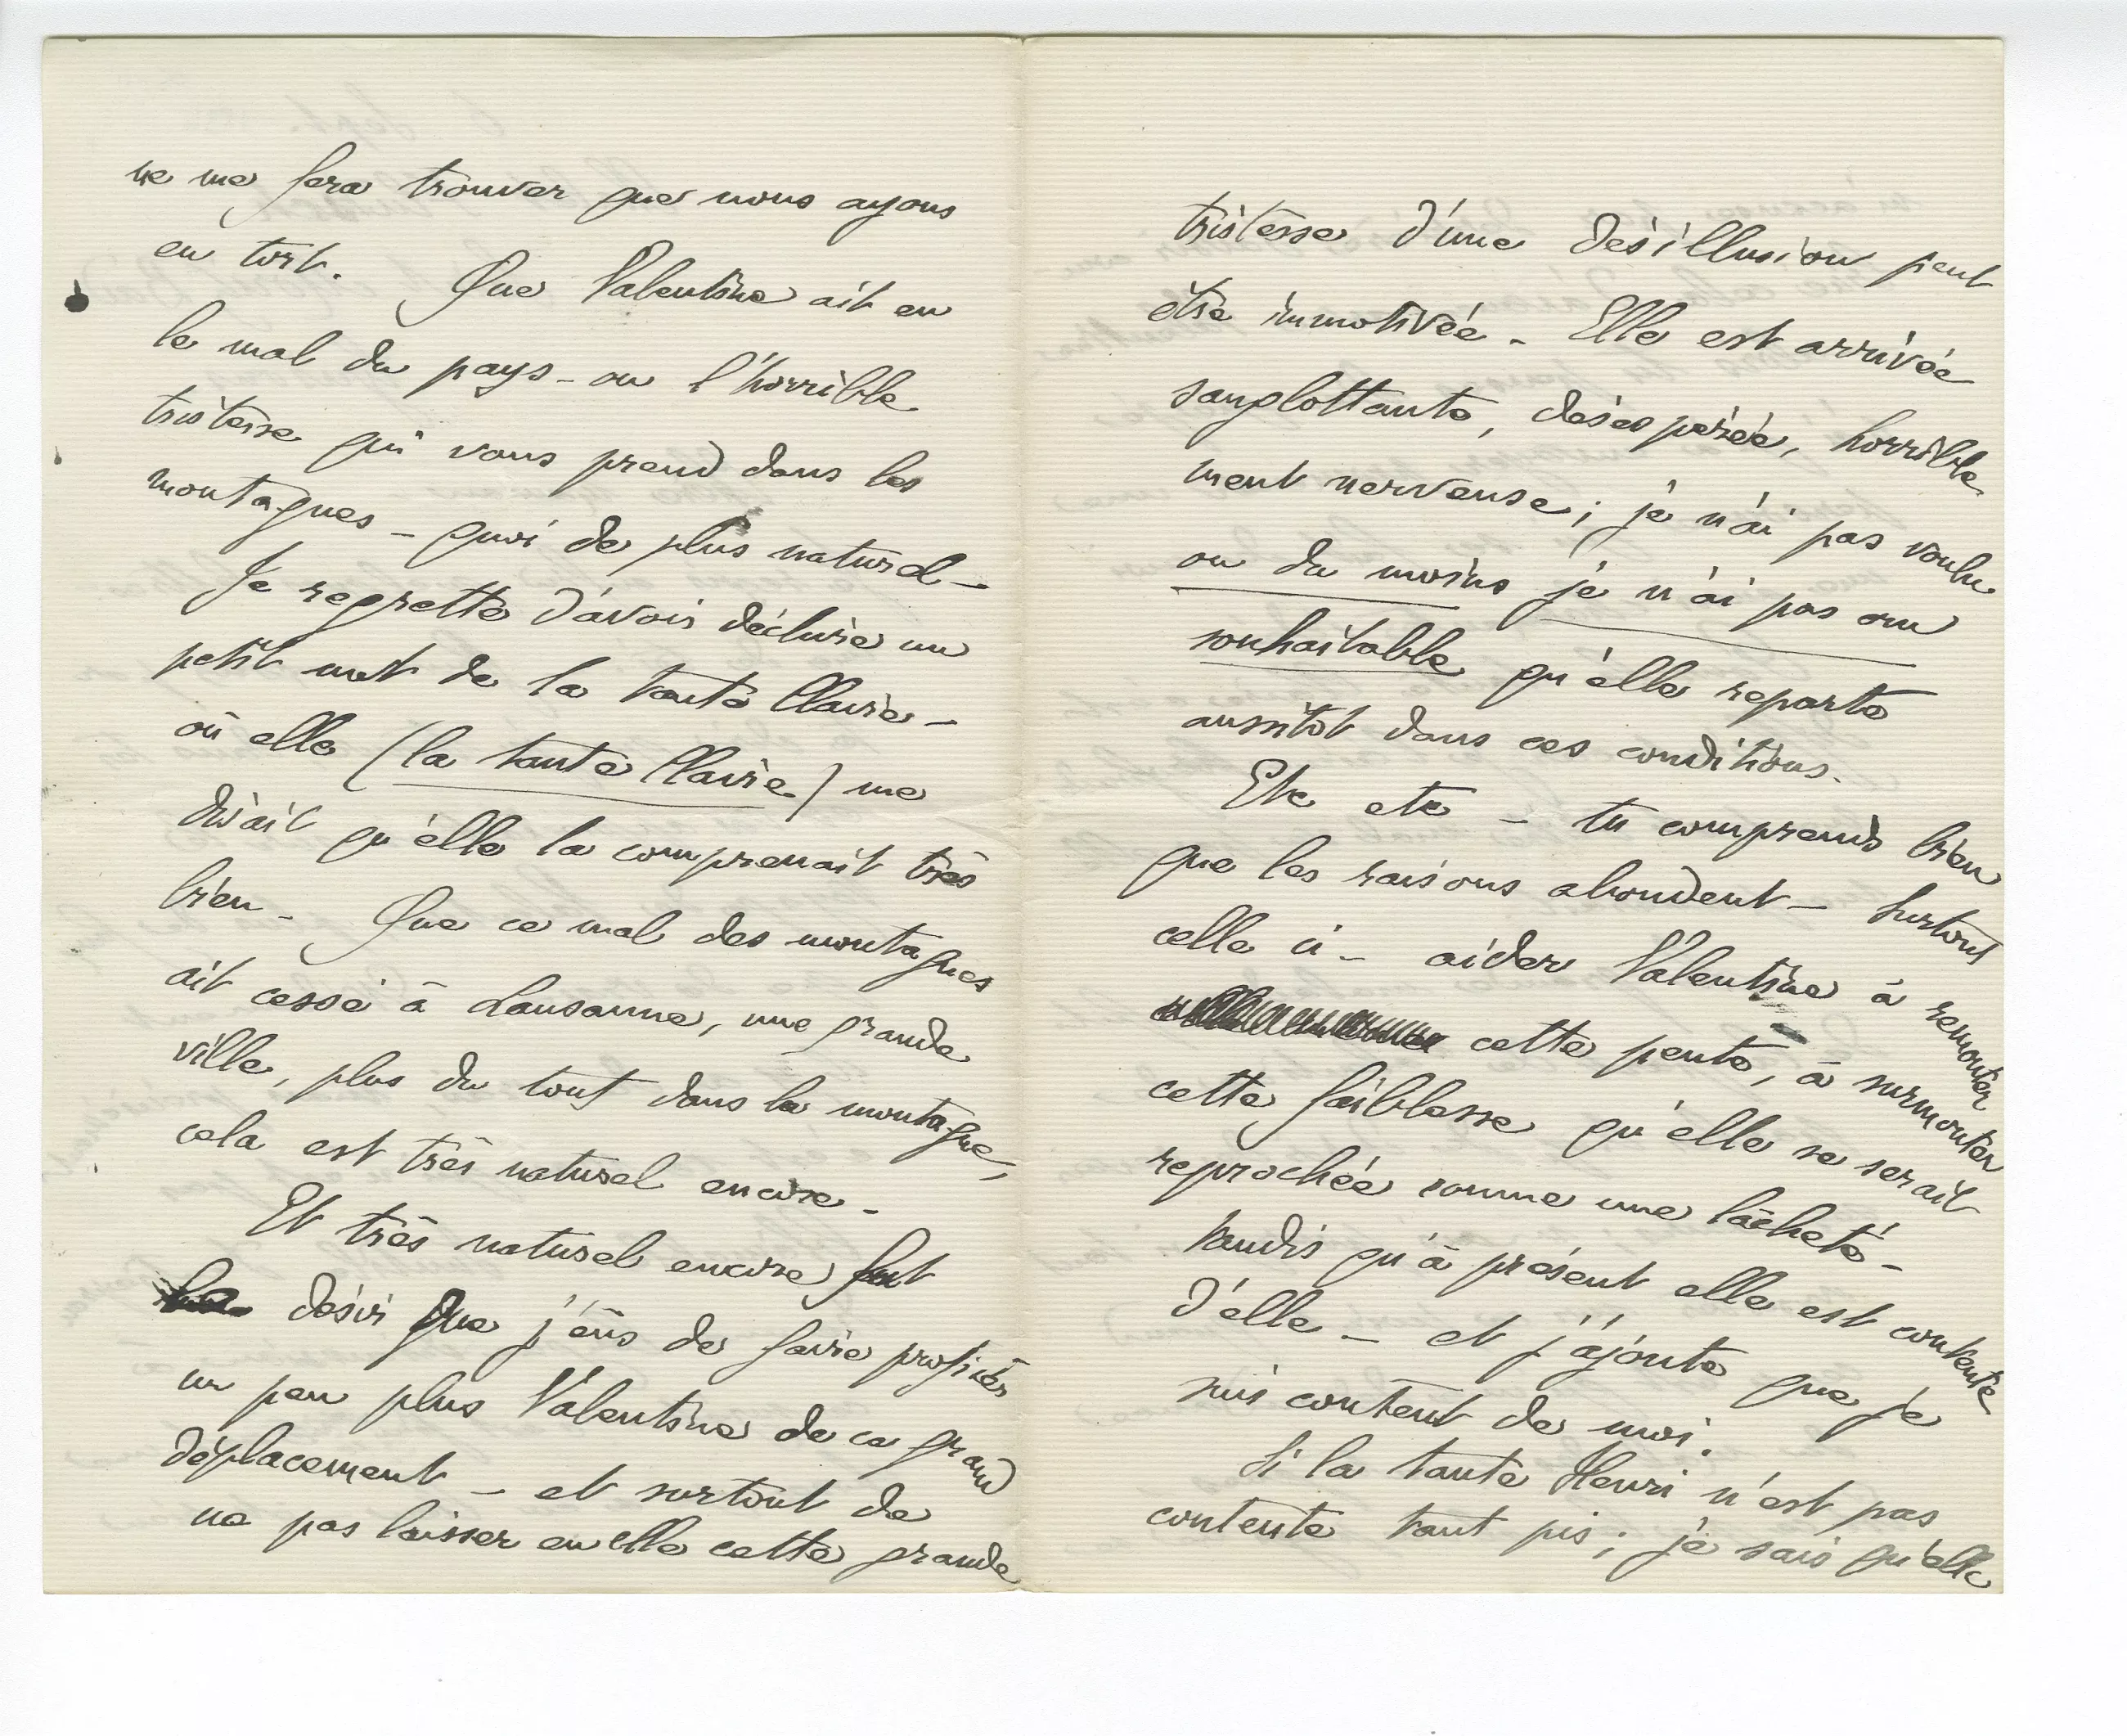 ne me fera trouver que nous ayons
eu tort. Que Valentine ait eu
le mal du pays - ou l'horrible
tristesse qui vous prend dans les
montagnes - quoi de plus naturel -
Je regrette d'avoir déchiré un
petit mot de la tante Claire -
où elle (la tante Claire) me
disait qu'elle la comprenait très
bien - Que ce mal des montagnes
ait cessé à Lausanne, une grande
ville, plus du tout dans la montagne,
cela est très naturel encore -
Et très naturel encore fut
désir que j'eus de faire profiter
un peu plus Valentine de ce grand
déplacement - et surtout de
ne pas laisser en elle cette grande
tristesse d'une désillusion peut
être immotivée - Elle est arrivée
sanglottante, désespérée, horrible
ment nerveuse ; je n'ai pas voulu
ou du moins je n'ai pas cru
souhaitable qu'elle reparte
aussitôt dans ces conditions.
Etc etc - tu comprends bien
que les raisons abondent - surtout
celle ci - aider Valentine à remonter
cette pente, à surmonter
cette faiblesse qu'elle se serait
reprochée comme une lâcheté -
tandis qu'à présent elle est contente
d'elle - et j'ajoute que je
suis content de moi.
Si la tante Henri n'est pas
contente tant pis ; je sais qu'elle